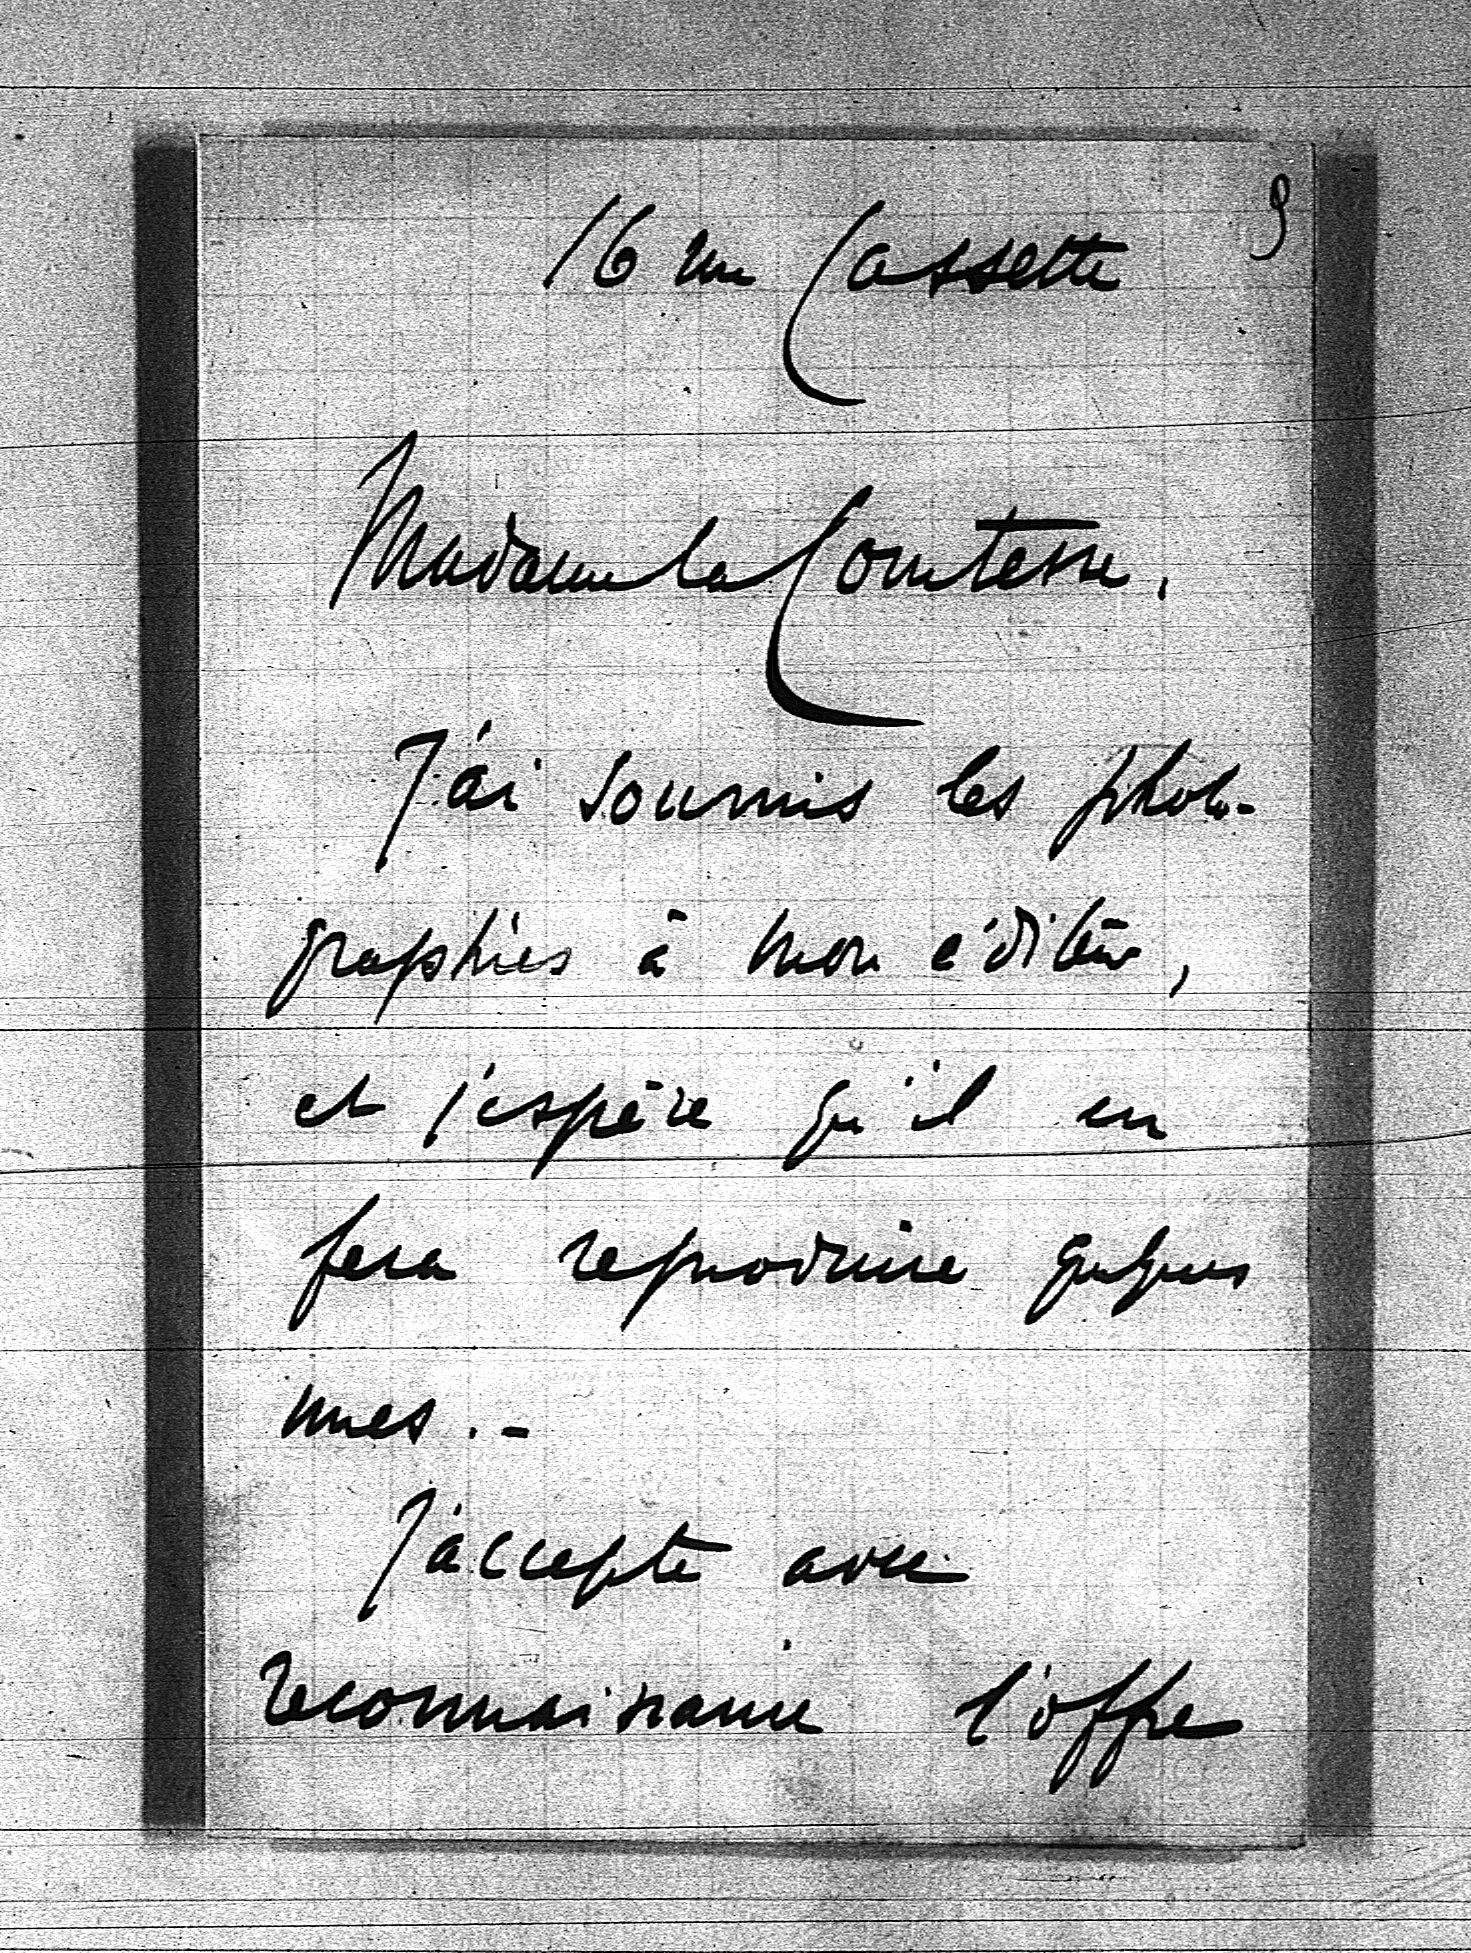 9
16 rue Cassette
Madame la Comtesse,
J'ai soumis les photo-
graphies à mon éditeur,
et j'espère qu'il en
fera reproduire quelques
unes. -
J'accepte avec
reconnaissance l'offre